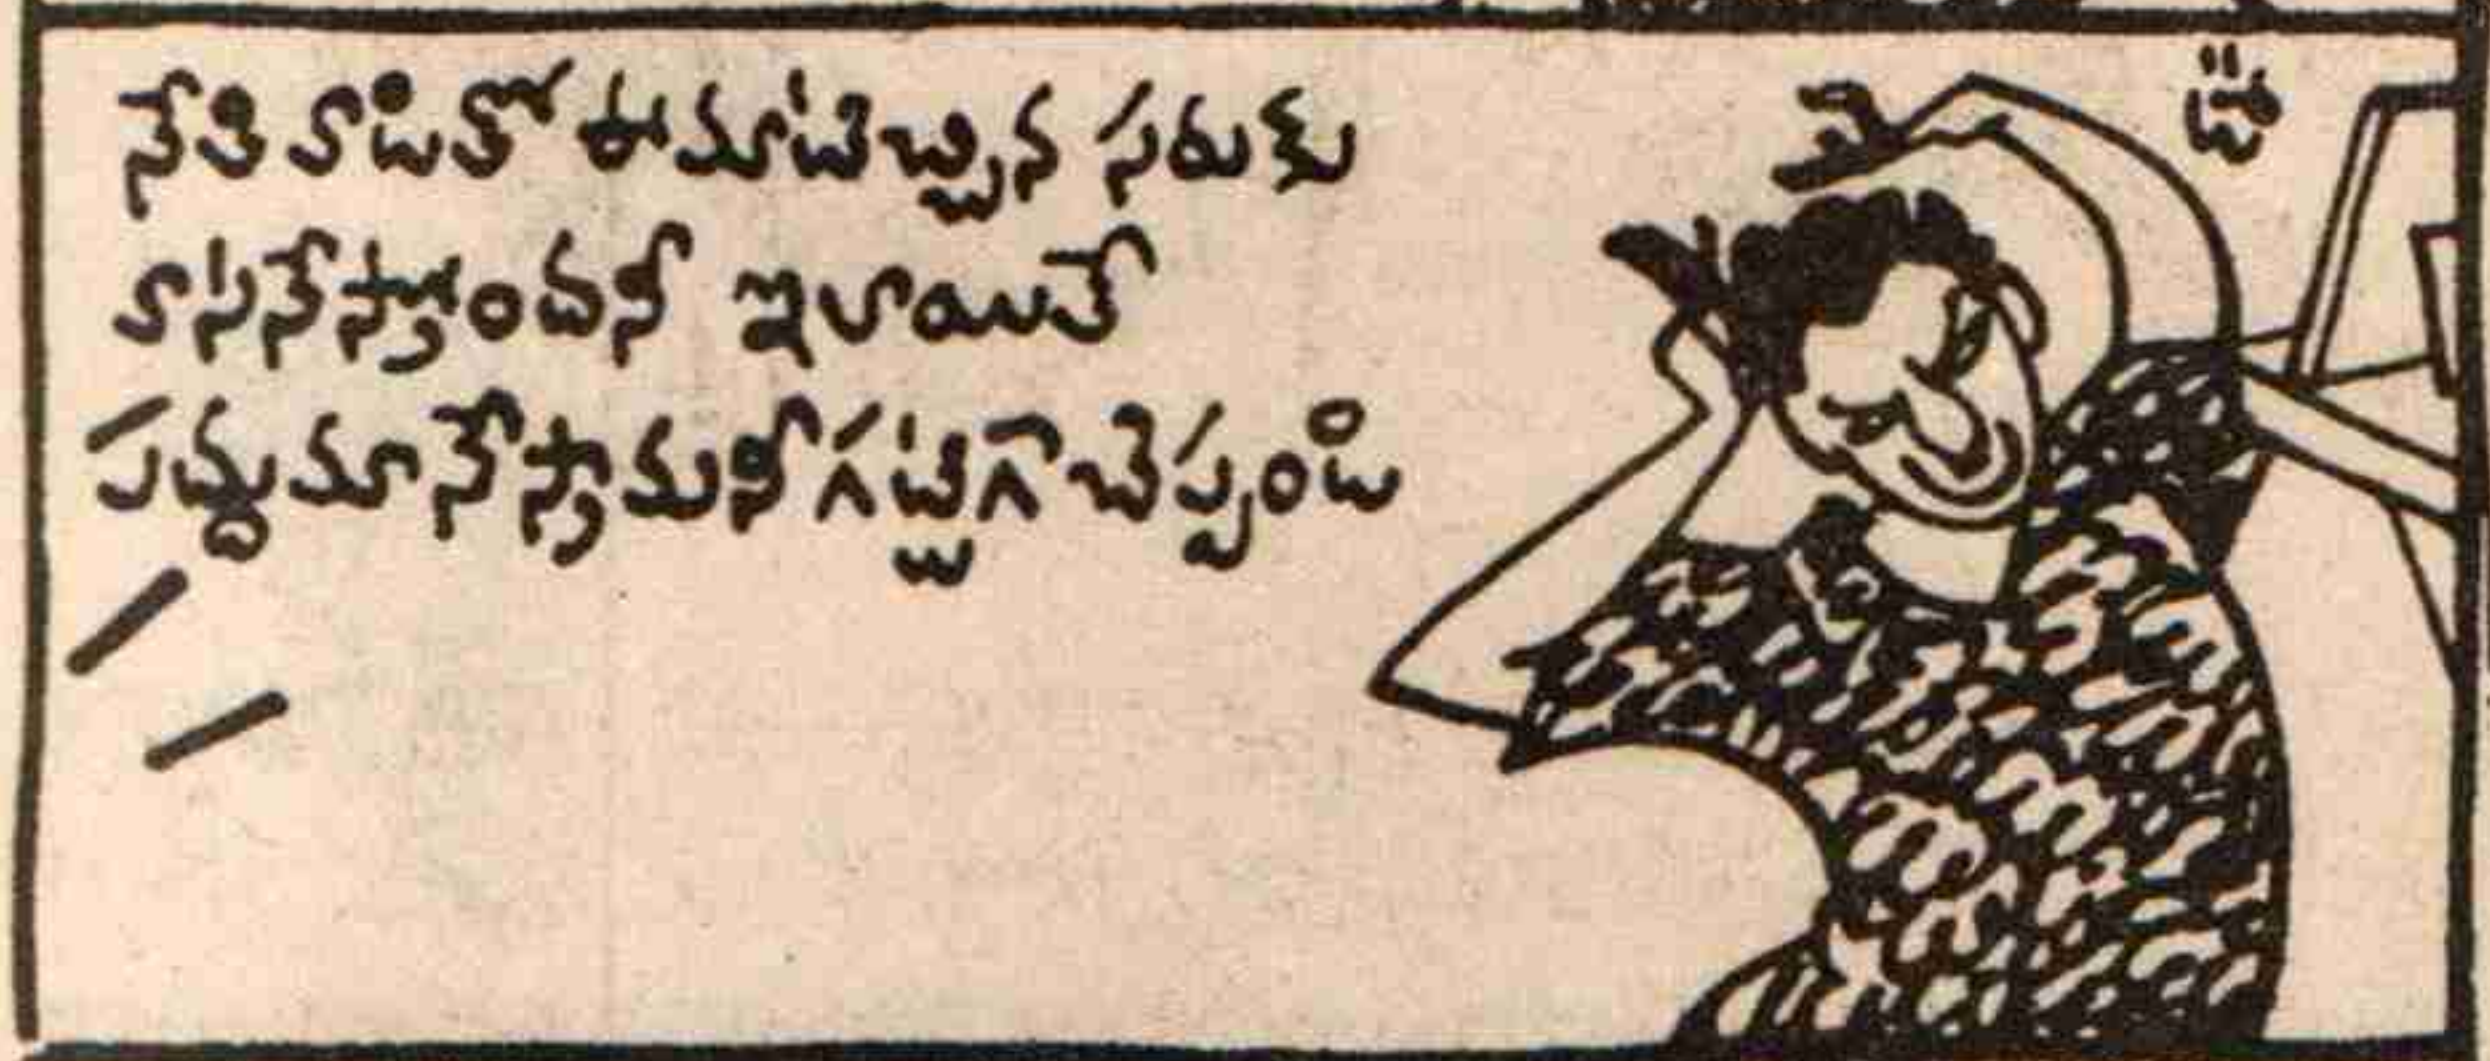 నేతి వాడితో ఈమాటిచ్చిన సరుకు
వాసనేస్తోందనీ ఇలాయితే
పద్దుమానేస్తామనీ గట్టిగా చెప్పండి